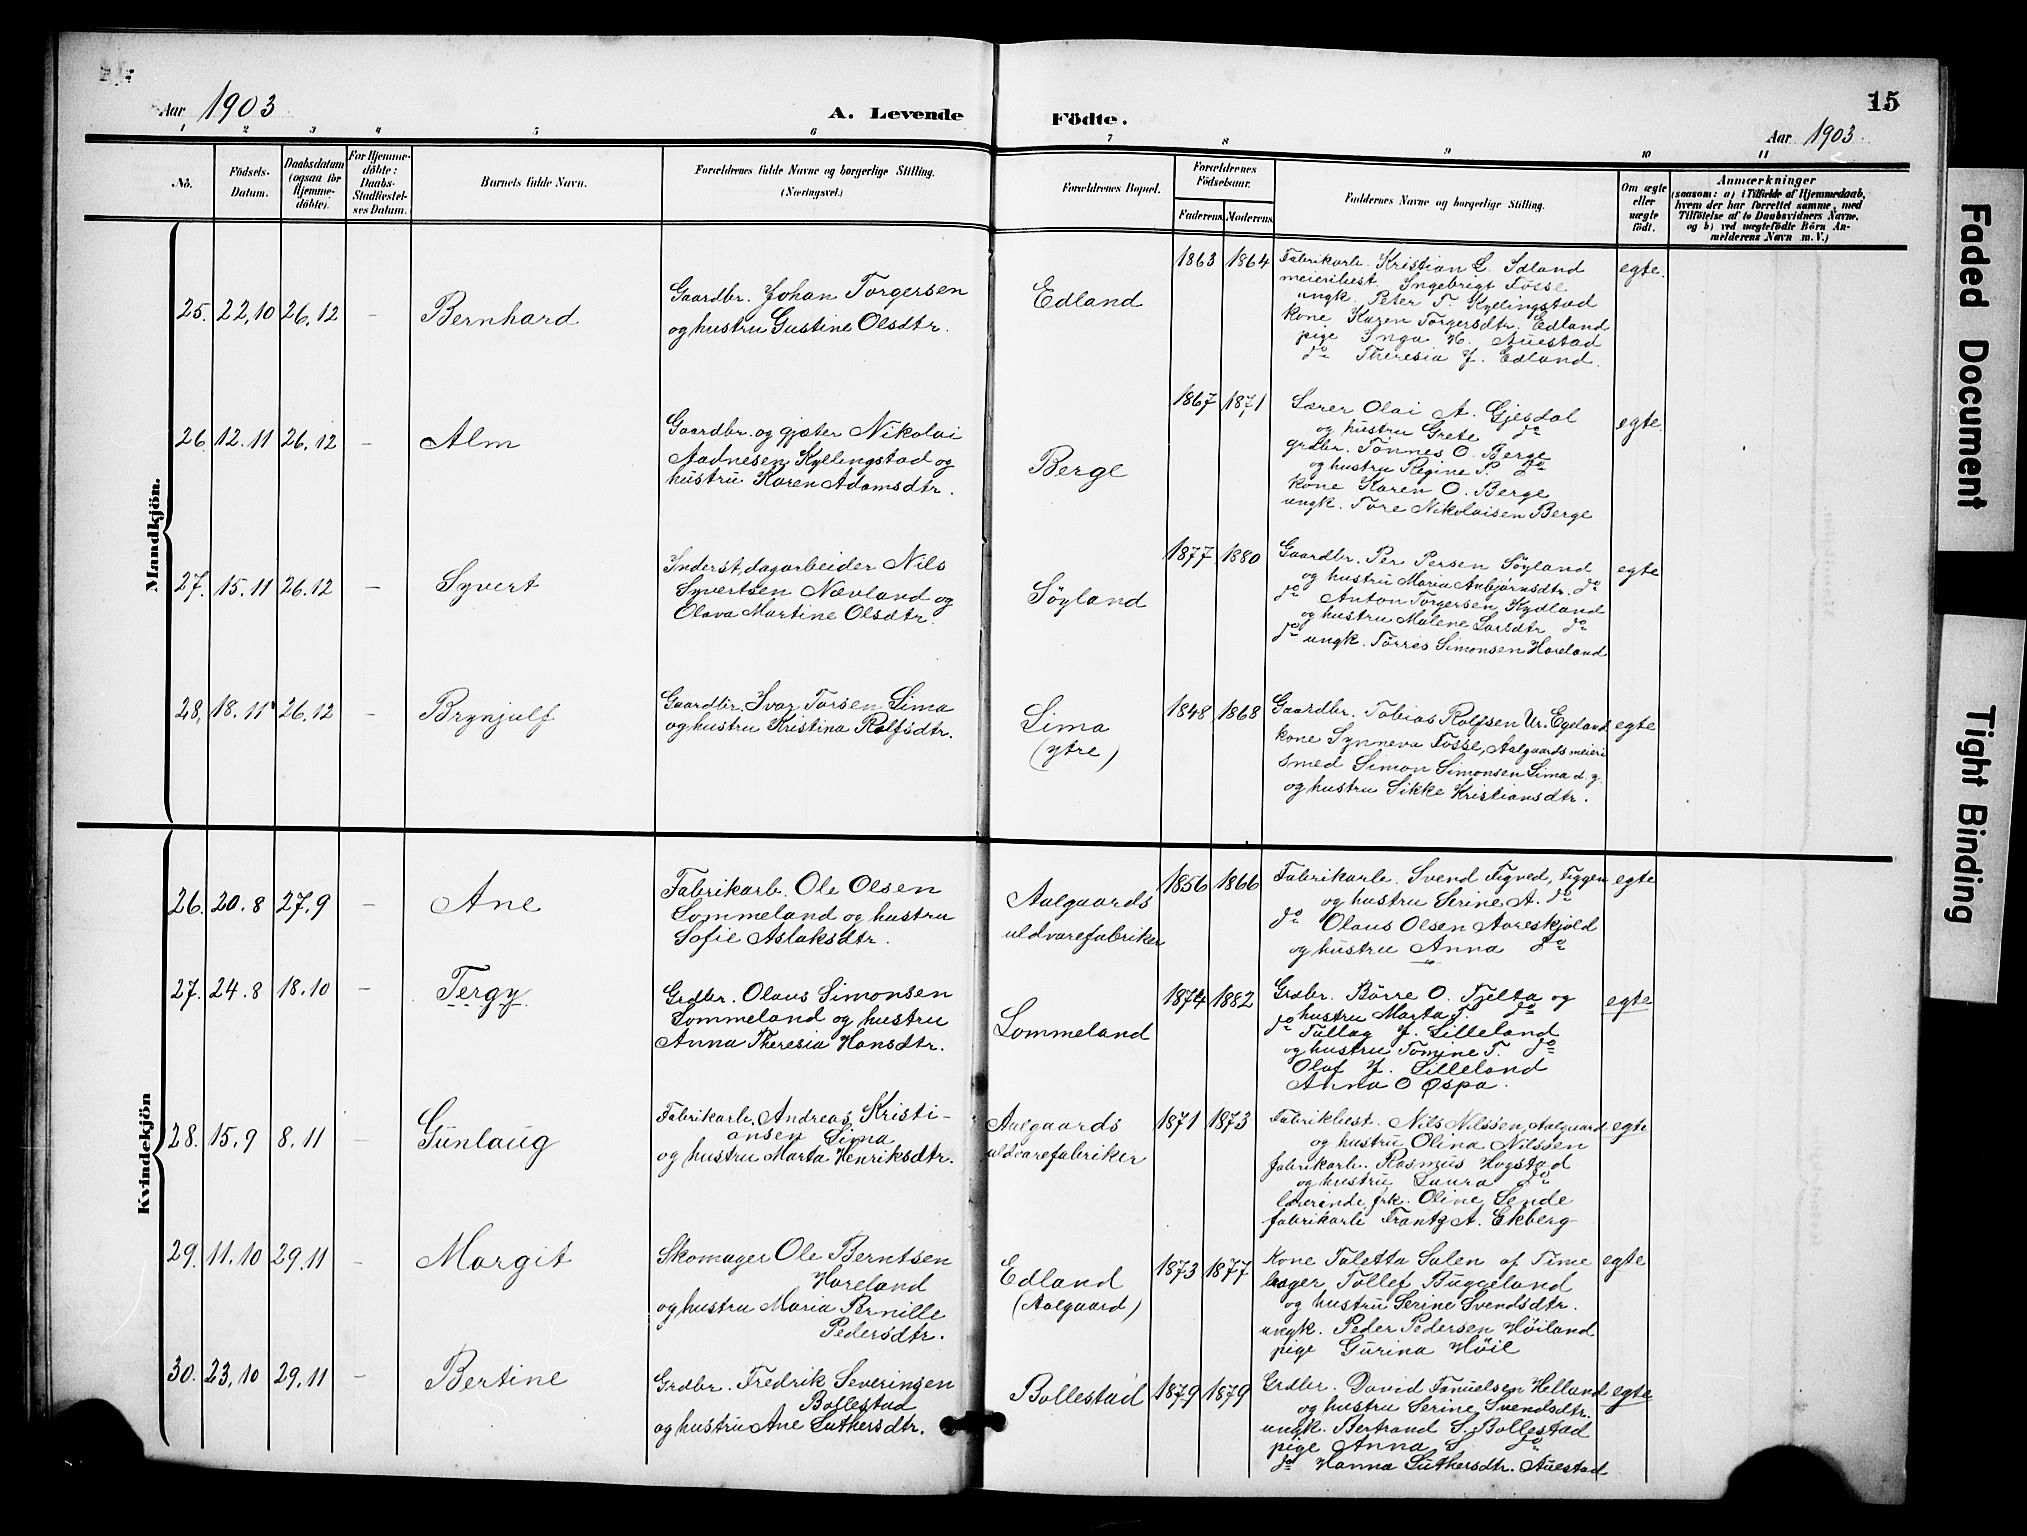 Aar 1903
A. Levende Födte.
15
Aar 1903
1 2 3 4 5 6 7 8 9 10 11
No.
Födsels-Datum.
Daabsdatum (ogsaa for Hjemme-døbte).
For Hjemme-döbte: Daabs-Stadfæstel-ses Datum.
Barnets fulde Navn.
Forældrenes fulde Navne og borgerlige Stilling. (Næringsvei.)
Forældrenes Bopæl.
Forældrenes Födselsaar.
Faderens. Moderens.
Faddernes Navne og borgerlige Stilling.
Om ægte eller uægte födt.
Anmærkninger
(saasom: a) i Tilfælde af Hjemmedaab,
hvem der har forrettet samme, med
Tilföielse af to Daabsvidners Navne.
og b) ved uægtefödte Börn An-
melderens Navn m. V.)
Mandkjön.
25. 22,10 26,12 - Bernhard
Gaardbr. Johan Torgersen
og hustru Gustine Olsdtr.
Edland
1863 1864
Fabrikarb. Kristian L. Idland
meieribest. Ingebrigt Fosse
ungk. Peter T. Kyllingstad
kone Karen Torgersdtr. Edland
pige Inga H. Auestad
do Theresia J. Edland.
egte.
26. 12.11 26.12 - Alm
Gaardbr. og gjæter Nikolai
Aadnesen Kyllingstad og
hustru Karen Adamsdtr.
Berge
1867 1871
Lærer Olai A. Gjesdal
og hustru Grete do
grdbr. Tønnes O. Berge
og hustru Regine P. do
kone Karen O. Berge
ungk. Tore Nikolaisen Berge
egte.
27. 15.11 26.12 - Syvert
Inderst, dagarbeider Nils
Syvertsen Nævland og
Olava Martine Olsdtr.
Söyland
1877 1880
Gaardbr. Per Persen Söyland
og hustru Maria Anbjørnsdtr. do
do Anton Torgersen Kydland
og hustru Malene Larsdtr do
do ungk. Tørres Simonsen Hareland
egte
28, 18.11 26.12 - Brynjulf
Gaardbr. Ivar Torsen Lima
og hustru Kristina Rolfsdtr.
Lima
(ytre)
1848 1868
Gaardbr. Tobias Rolfsen Ur. Egeland
kone Synneva Fosse, Aalgaards meieri
smed Simon Simonsen Lima d. y.
og hustru Sikke Kristiansdtr.
egte
Kvindekjön
26. 20.8 27.9 - Ane
Fabrikarb. Ole Olsen
Lommeland og hustru
Sofie Aslaksdtr.
Aalgaards
uldvarefabriker
1856 1866
Fabrikarb. Svend Tigved, Figgen
og hustru Serine A. do
do Olaus Olsen Aareskjold
og hustru Anna do
egte
27. 24.8 18.10 - Tergy
Grdbr. Olaus Simonsen
Lommeland og hustru
Anna Theresia Hansdtr.
Lommeland
1874 1882
Grdbr. Börre O. Tjelta og
hustru Marta T. do
do Tallag J. Lilleland
og hustru Tomine T. do
Olaf J. Lilleland
Anna O Øspa.
egte
28. 15.9 8.11 - Gunlaug
Fabrikarb. Andreas Kristi-
ansen Lima
og hustru Marta Henriksdtr.
Aalgaards
uldvarefabriker
1871 1873
Fabrikbest. Nils Nilssen, Aalgaard
og hustru Olina Nilssen
fabrikarb. Rasmus Hogstad
og hustru Laura do
lærerinde, frk. Oline Sende
fabrikarb Frantz A. Ekberg
egte
29. 11.10 29.11 - Margit
Skomager Ole Berntsen
Hareland
og hustru Maria Pernille
Pedersdtr.
Edland
(Aalgaard)
1873 1877
Kone Taletta Salen af Time
bager Tollef Buggeland
og hustru Serine Svendsdtr.
ungk. Peder Pedersen Höiland
pige Gurina Höil
egte
30. 23,10 29.11 - Bertine
Grdbr. Fredrik Severinsen
Bollestad
og hustru Ane Luthersdtr.
Bollestad
1879 1879
Grdbr. David Fanuelsen Helland
og hustru Serine Svendsdtr.
ungk. Bertrand S. Bollestad
pige Anna S do
do Hanna Luthersdtr. Auestad
egte
Faded Document
Tight Binding